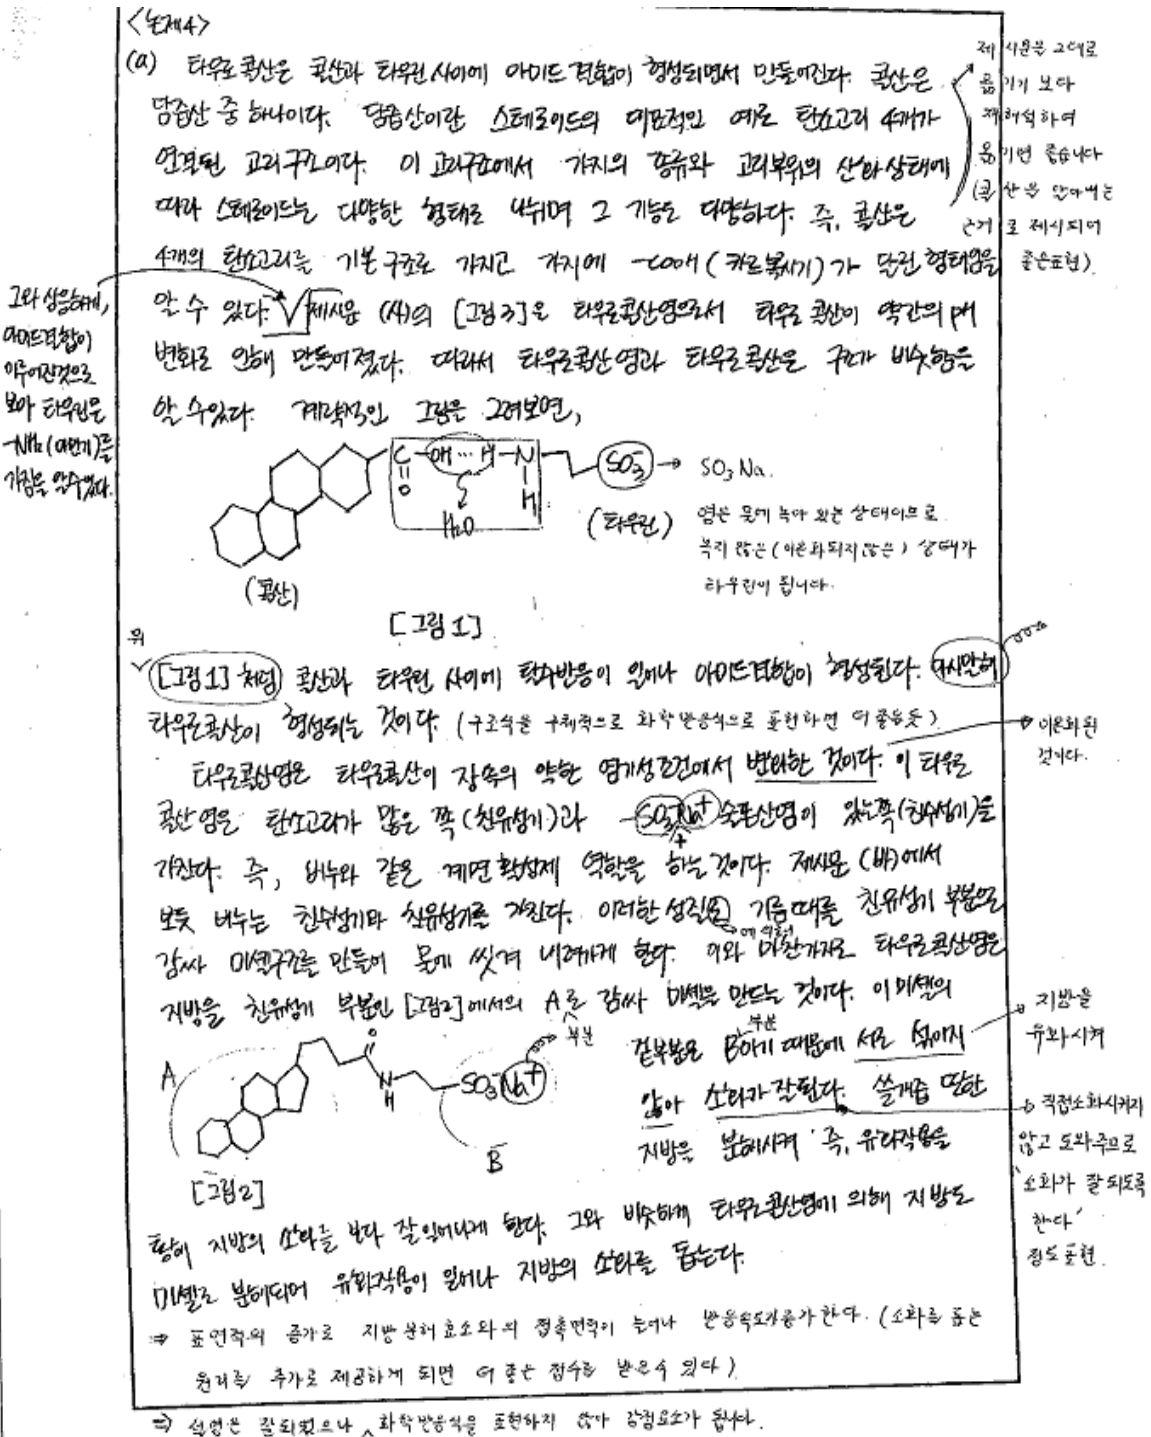 <논제4>
(a) 타우로콜산은 콜산과 타우린 사이에 아미드 결합이 형성되면서 만들어진다. 콜산은
담즙산 중 하나이다. 담즙산이란 스테로이드의 대표적인 예로 탄소고리 4개가
연결된 고리구조이다. 이 고리구조에서 가지의 종류와 고리부위의 산화상태에
따라 스테로이드는 다양한 형태로 나뉘며 그 기능도 다양하다. 즉, 콜산은
4개의 탄소고리를 기본구조로 가지고 가지에 -COOH (카르복시기)가 달린 형태임을
알 수 있다. 제시문 (사)의 [그림3]은 타우로콜산염으로서 타우로콜산이 약간의 pH
변화로 인해 만들어졌다. 따라서 타우로콜산염과 타우로콜산은 구조가 비슷함을
알 수있다. 개략적인 그림을 그려보면,
제시문을 그대로
옮기기 보다
재해석하여
옮기면 좋습니다
(콜산을 알아내는
근거로 제시되어
좋은표현).
그와 상응하게,
아미드결합이
이루어진것으로
보아 타우린은
-NH₂(아민기)를
가짐을 알수있다.
C OH ··· H N SO₃⁻ → SO₃Na.
O H
H₂O
(타우린)
(콜산)
염은 물에 녹아 있는 상태이므로
녹지 않은(이온화되지않은) 상태가
타우린이 됩니다.
[그림1]
위
[그림1]처럼 콜산과 타우린 사이에 탈수반응이 일어나 아미드결합이 형성된다. 다시말해
타우로콜산이 형성되는 것이다. (구조식을 구체적으로 화학반응식으로 표현하면 더 좋을듯)
타우로콜산염은 타우로콜산이 장속의 약한 염기성조건에서 변화한 것이다. 이 타우로
이온화된
것이다.
콜산염은 탄소고리가 많은 쪽(친유성기)과 -SO₃⁻Na⁺ 술폰산염이 있는쪽(친수성기)을
가진다. 즉, 비누와 같은 계면활성제 역할을 하는 것이다. 제시문 (바)에서
보듯 비누는 친수성기와 친유성기를 가진다. 이러한 성질을 기름때를 친유성기 부분으로
에 의해
감싸 미셀구조를 만들어 물에 씻겨 내려가게 한다. 이와 마찬가지로 타우로콜산염은
지방을 친유성기 부분인 [그림2]에서의 A로 감싸 미셀을 만드는 것이다. 이 미셀의
부분
겉부분은 B이기 때문에 서로 섞이지
부분
않아 소화가 잘된다. 쓸개즙 또한
지방을 분해시켜 즉, 유화작용을
지방을
유화시켜
직접소화시키지
않고 도와주므로
'소화가 잘 되도록
한다'
정도 표현.
A
O
N
H
SO₃⁻Na⁺
B
[그림2]
통해 지방의 소화를 보다 잘 일어나게 한다. 그와 비슷하게 타우로콜산염에 의해 지방도
미셀로 분해되며 유화작용이 일어나 지방의 소화를 돕는다.
⇒ 표면적의 증가로 지방 분해 효소와의 접촉면적이 늘어나 반응속도가증가한다. (소화를 돕는
원리를 추가로 제공하게 되면 더 좋은 점수를 받을수 있다)
⇒ 설명은 잘되었으나 화학반응식을 표현하지 않아 감점요소가 됩니다.